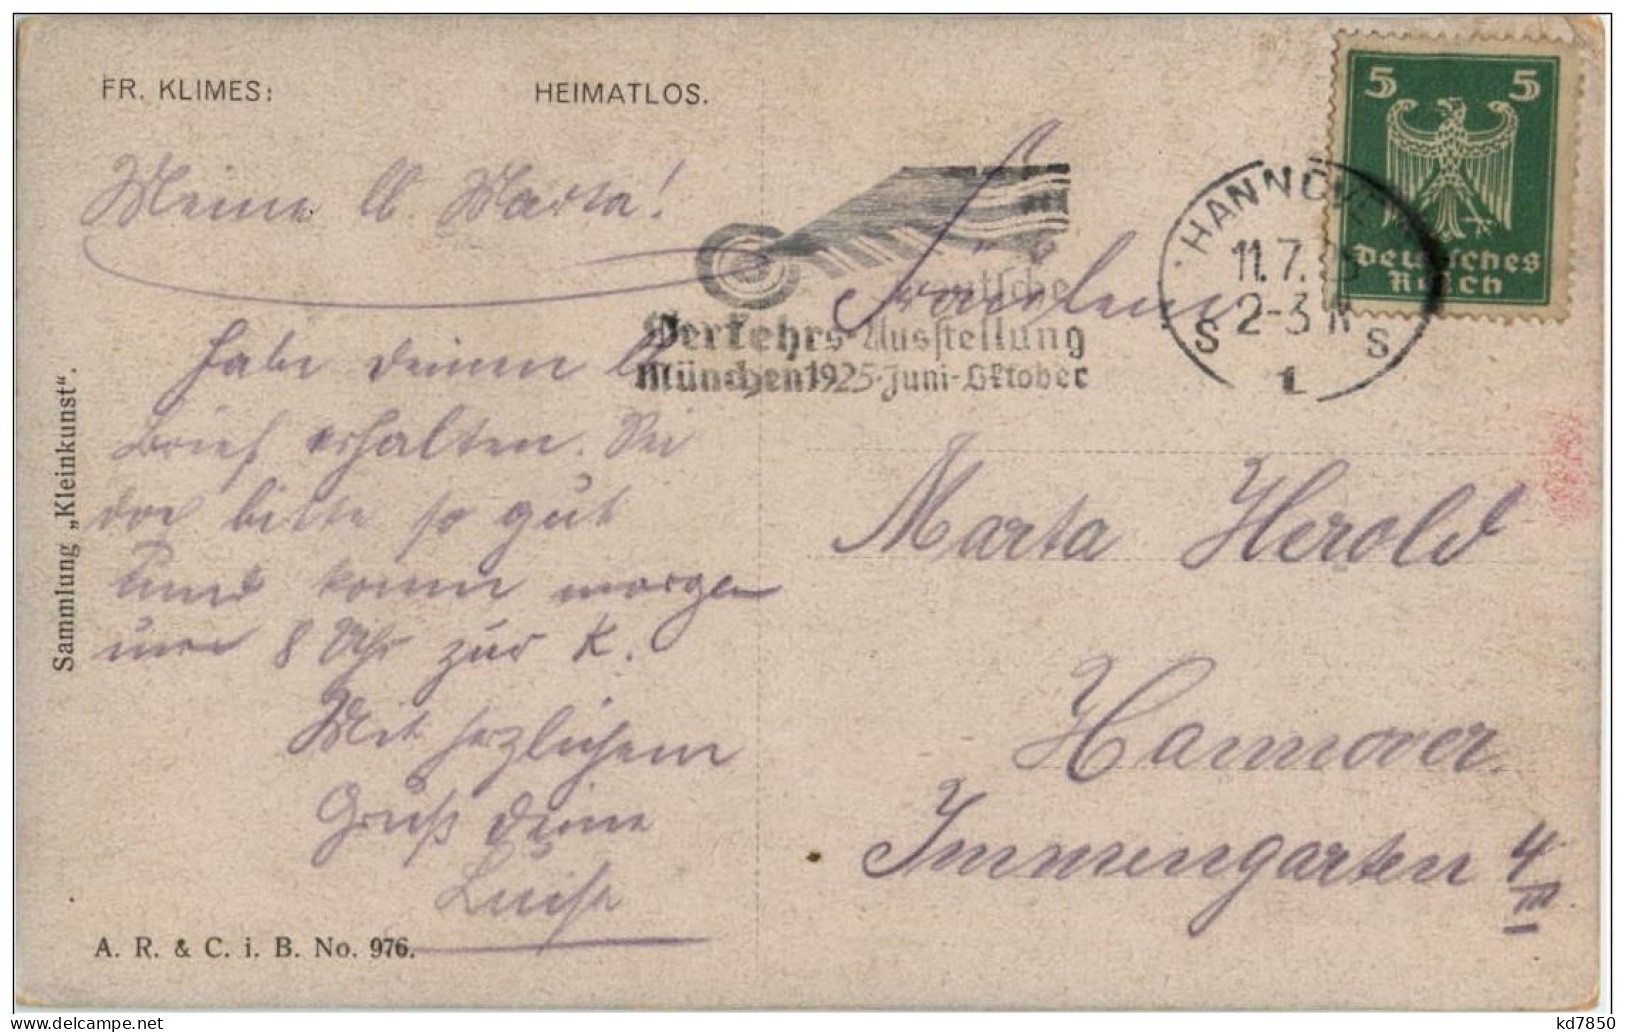 FR. KLIMES: HEIMATLOS.
Meine lb. Marta!
habe deinen lb.
Brief erhalten. Sei
doch bitte so gut
und komm morgen
um 8 Uhr zur K.
Mit herzlichem
Gruß deine
Luise
A. R. & C. i. B. No. 976.
Sammlung „Kleinkunst".
Deutsche
Verkehrs-Ausstellung
München 1925-Juni-Oktober
HANNOVER
11.7.25
2-3 N
S S
1
5 5
Deutsches
Reich
Fräulein
Marta Herold
Hannover.
Immengarten 4
III
kd7850